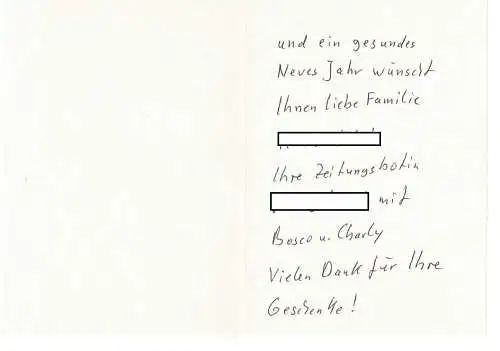 und ein gesundes
Neues Jahr wünscht
Ihnen liebe Familie
Ihre Zeitungsbotin
mit
Bosco u. Charly
Vielen Dank für Ihre
Geschenke!